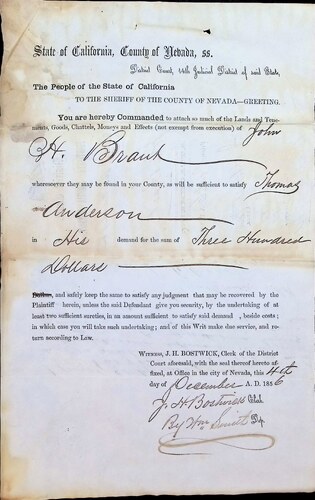 State of California, County of Nevada, ss.
District Court, 14th Judicial District of said State,
The People of the State of California
TO THE SHERIFF OF THE COUNTY OF NEVADA—GREETING.
You are hereby Commanded to attach so much of the Lands and Tene-
ments, Goods, Chattels, Moneys and Effects (not exempt from execution) of John
H. Brant
wheresoever they may be found in your County, as will be sufficient to satisfy Thomas
Anderson
in His demand for the sum of Three Hundred
Dollars
and safely keep the same to satisfy any judgment that may be recovered by the
Plaintiff herein, unless the said Defendant give you security, by the undertaking of at
least two sufficient sureties, in an amount sufficient to satisfy said demand, beside costs;
in which case you will take such undertaking; and of this Writ make due service, and re-
turn according to Law.
WITNESS, J. H. BOSTWICK, Clerk of the District
Court aforesaid, with the seal thereof hereto af-
fixed, at Office in the city of Nevada, this 4th
day of December A. D. 1856
J. H. Bostwick Clerk.
By Wm Smith Dp